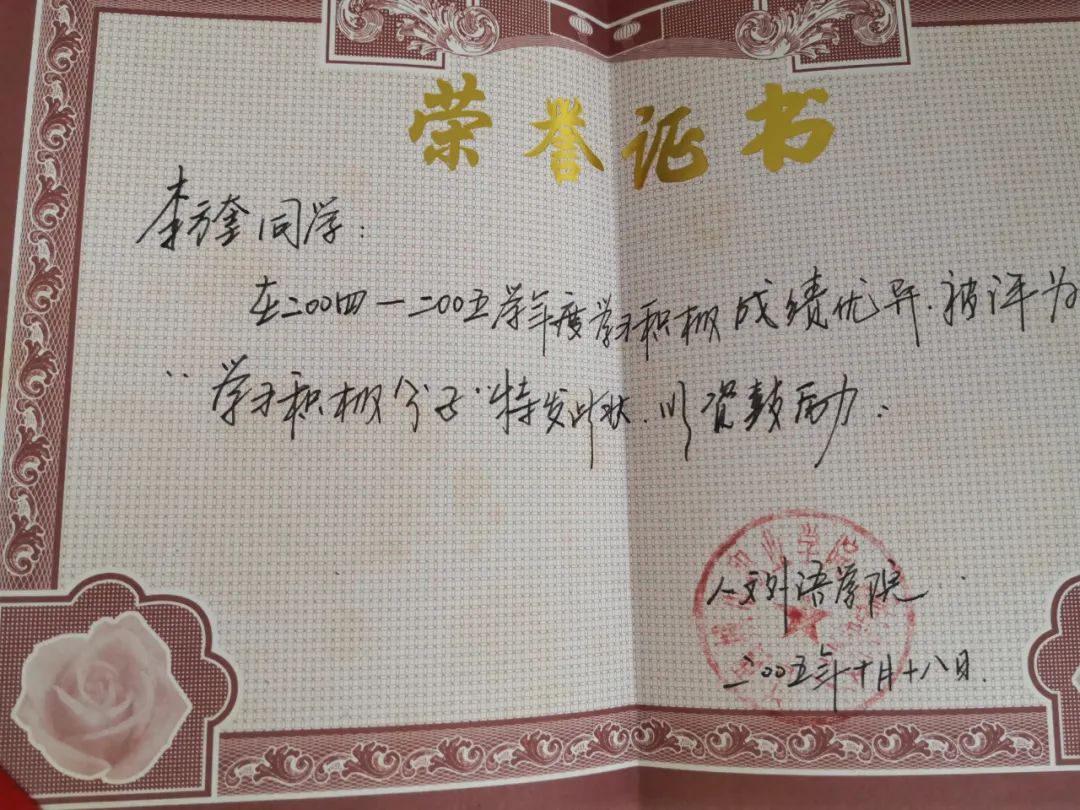 荣誉证书
李方奎同学：
在二00四一二00五学年度学习积极成绩优异.被评为
“学习积极分子”特发此状.以资鼓励.
业学院
人文外语学院
二00五年十月十八日.